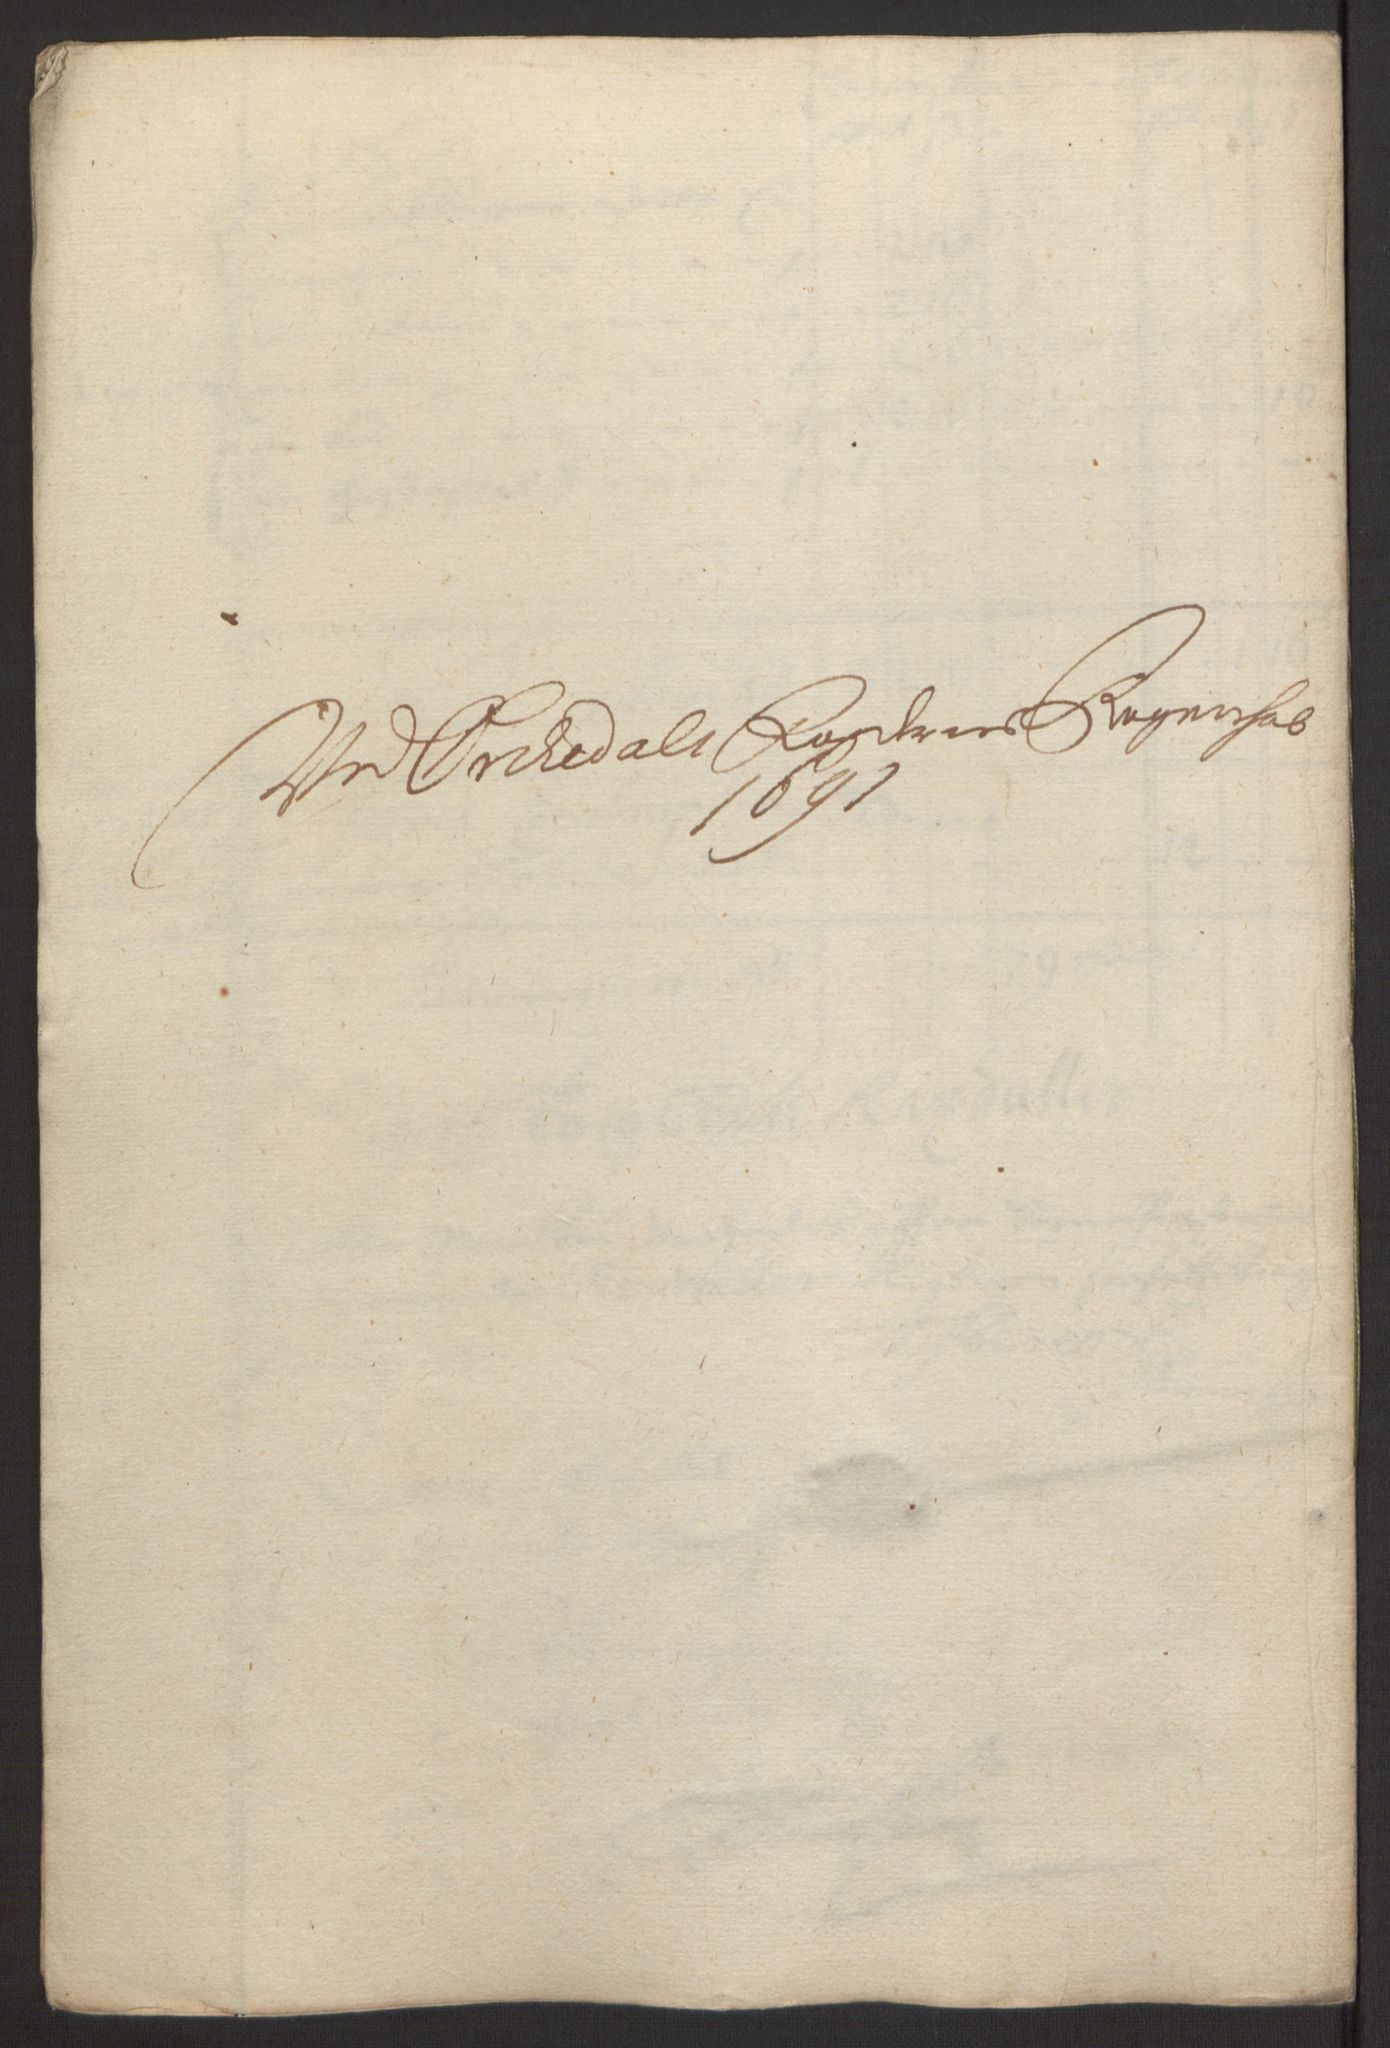 Ved Orchedals Fogderies Regenschab
1691